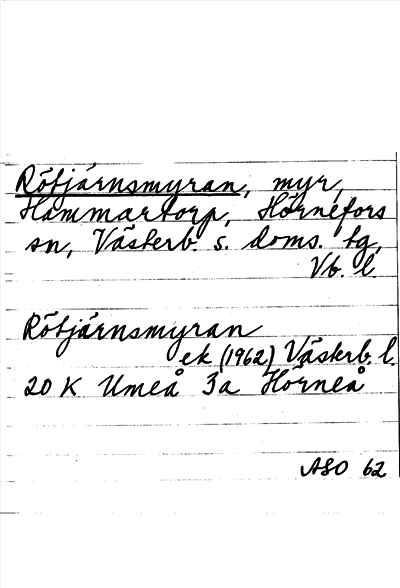 Rötjärnsmyran, myr,
Hammartorp, Hörnefors
sn, Västerb. s. doms. tg,
Vb. l
Rötjärnsmyran
ek (1962) Västerb. l.
20 K Umeå 3a Hörneå
ASO 62